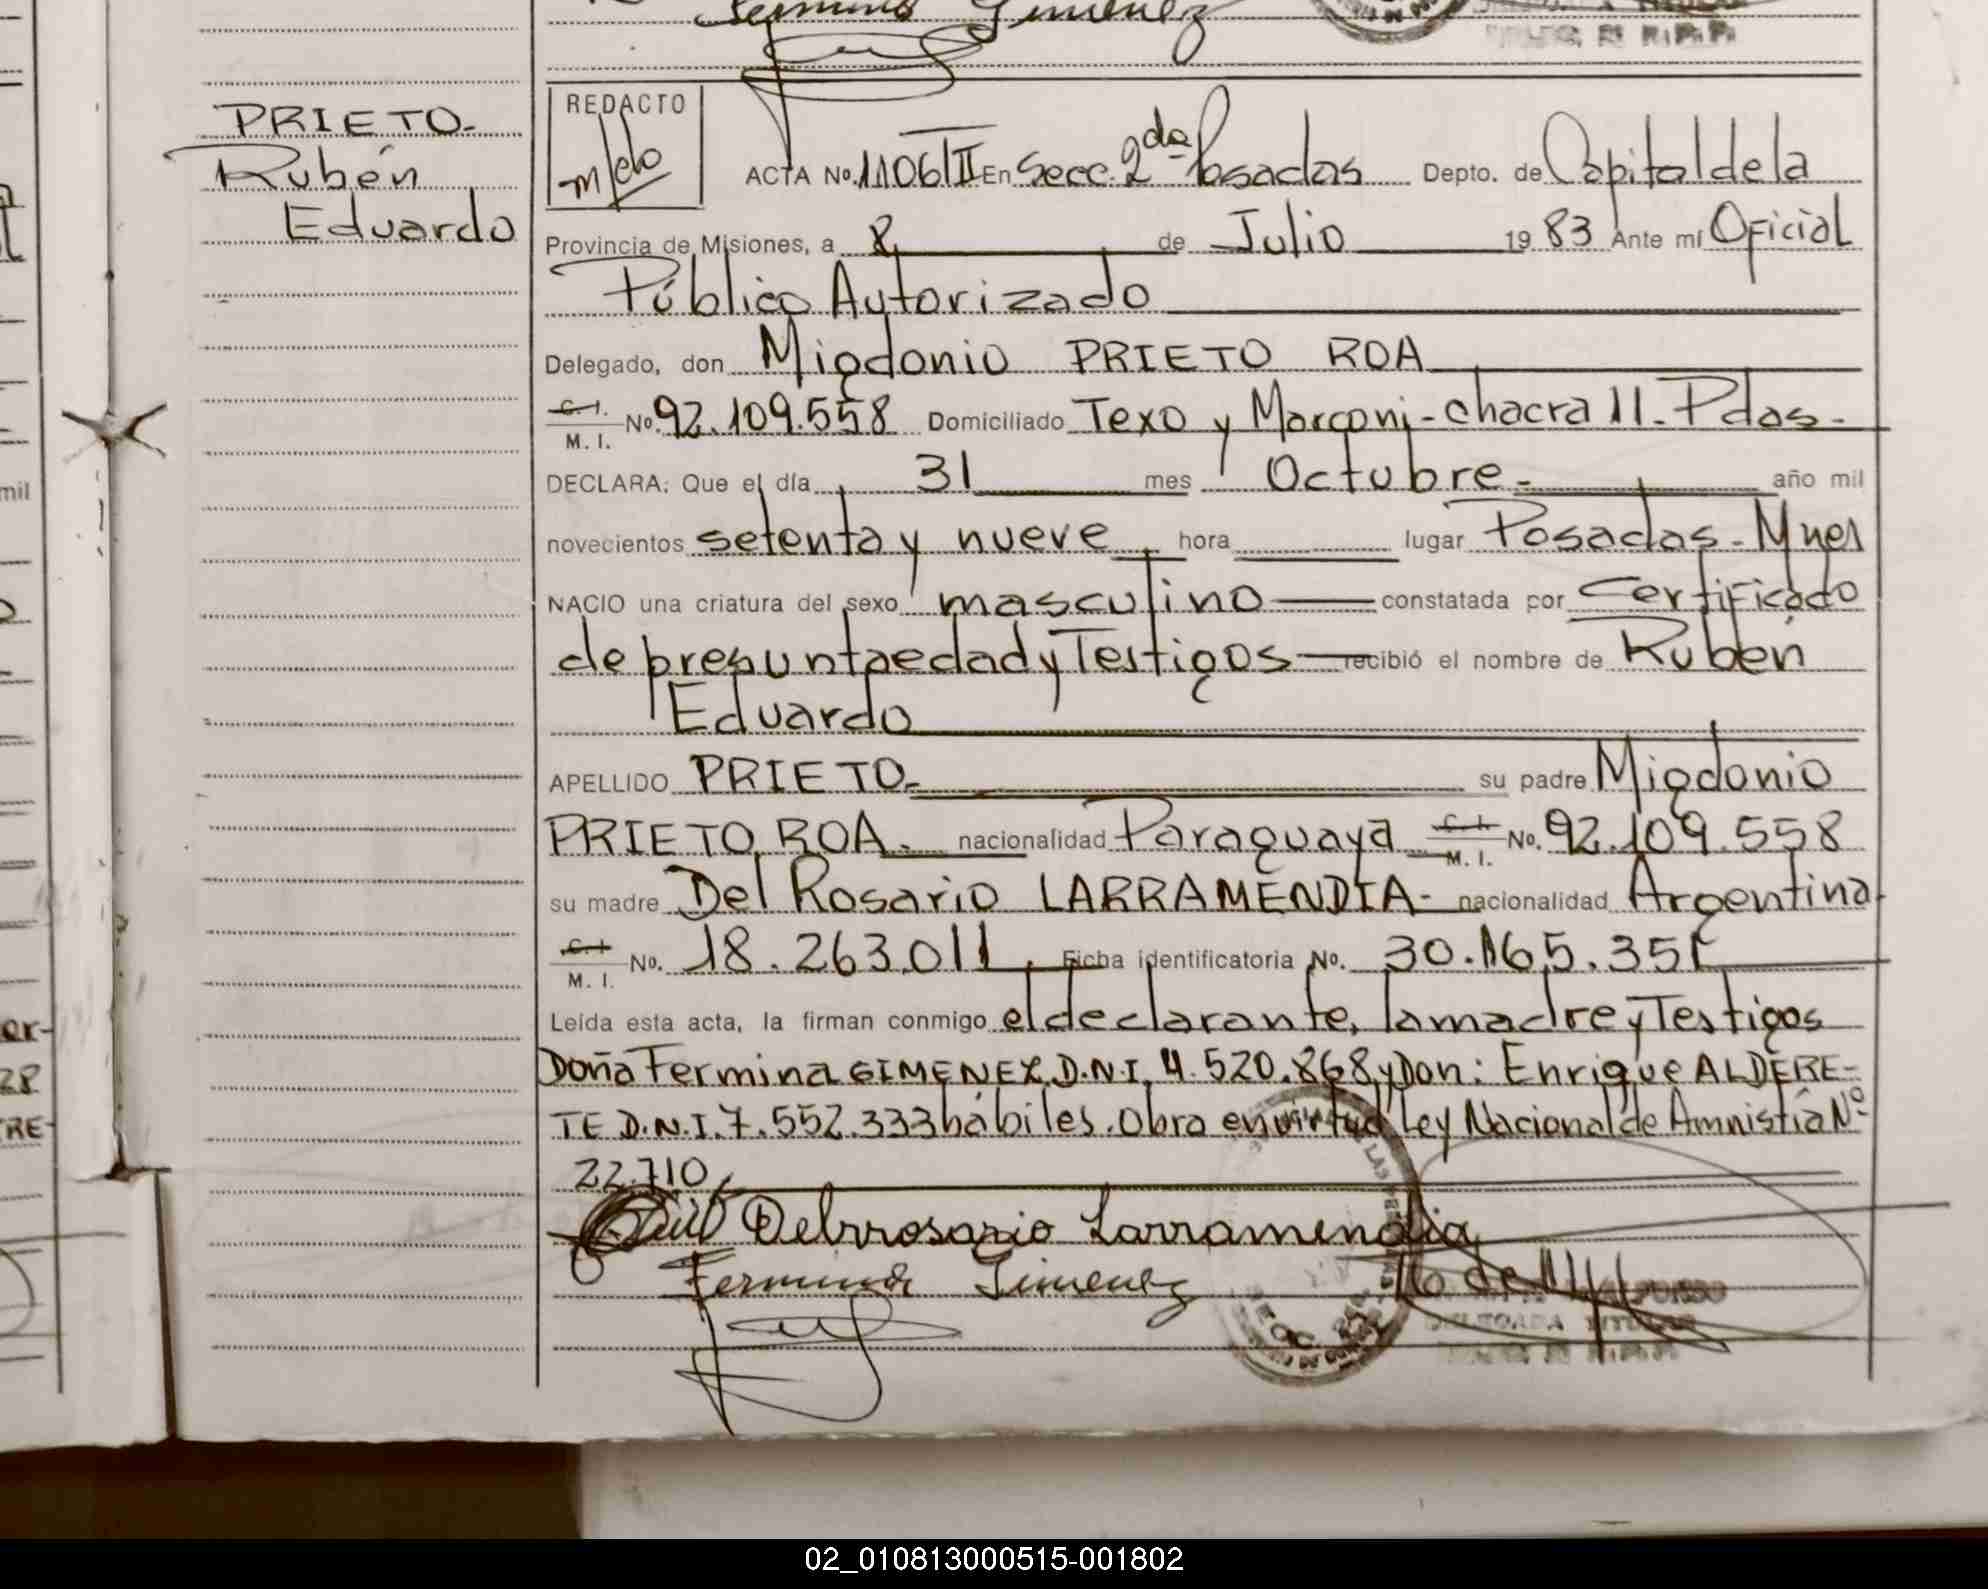 Fermina Gimenez
PRIETO.
Rubén
Eduardo
REDACTO
Melo
ACTA No. 1106/II En Secc. 2da Posadas Depto. de Capital de la
Provincia de Misiones, a 8 de Julio 19 83 Ante mí Oficial
Público Autorizado
Delegado, don Migdonio PRIETO ROA
C. I. / M. I. No. 92.109.558 Domiciliado Texo y Marconi - chacra 11. Pdas.
DECLARA: Que el día 31 mes Octubre. año mil
novecientos setenta y nueve hora lugar Posadas - Mnes
NACIO una criatura del sexo masculino constatada por Certificado
de presunta edad y Testigos recibió el nombre de Rubén
Eduardo
APELLIDO PRIETO. su padre Migdonio
PRIETO ROA. nacionalidad Paraguaya C. I. / M. I. No. 92.109.558
su madre Del Rosario LARRAMENDIA - nacionalidad Argentina
C. I. / M. I. No. 18.263.011 Ficha identificatoria No. 30.165.351
Leída esta acta, la firman conmigo el declarante, la madre y Testigos
Doña Fermina GIMENEZ D.N.I. 4.520.868 y Don: Enrique ALDERE-
TE D.N.I. 7.552.333 hábiles. Obra en virtud Ley Nacional de Amnistía Nº
22.710
Delrrosario Larramendia
Fermina Gimenez
DELEGADA TITULAR
mil
er-
28
RE-
02_010813000515-001802